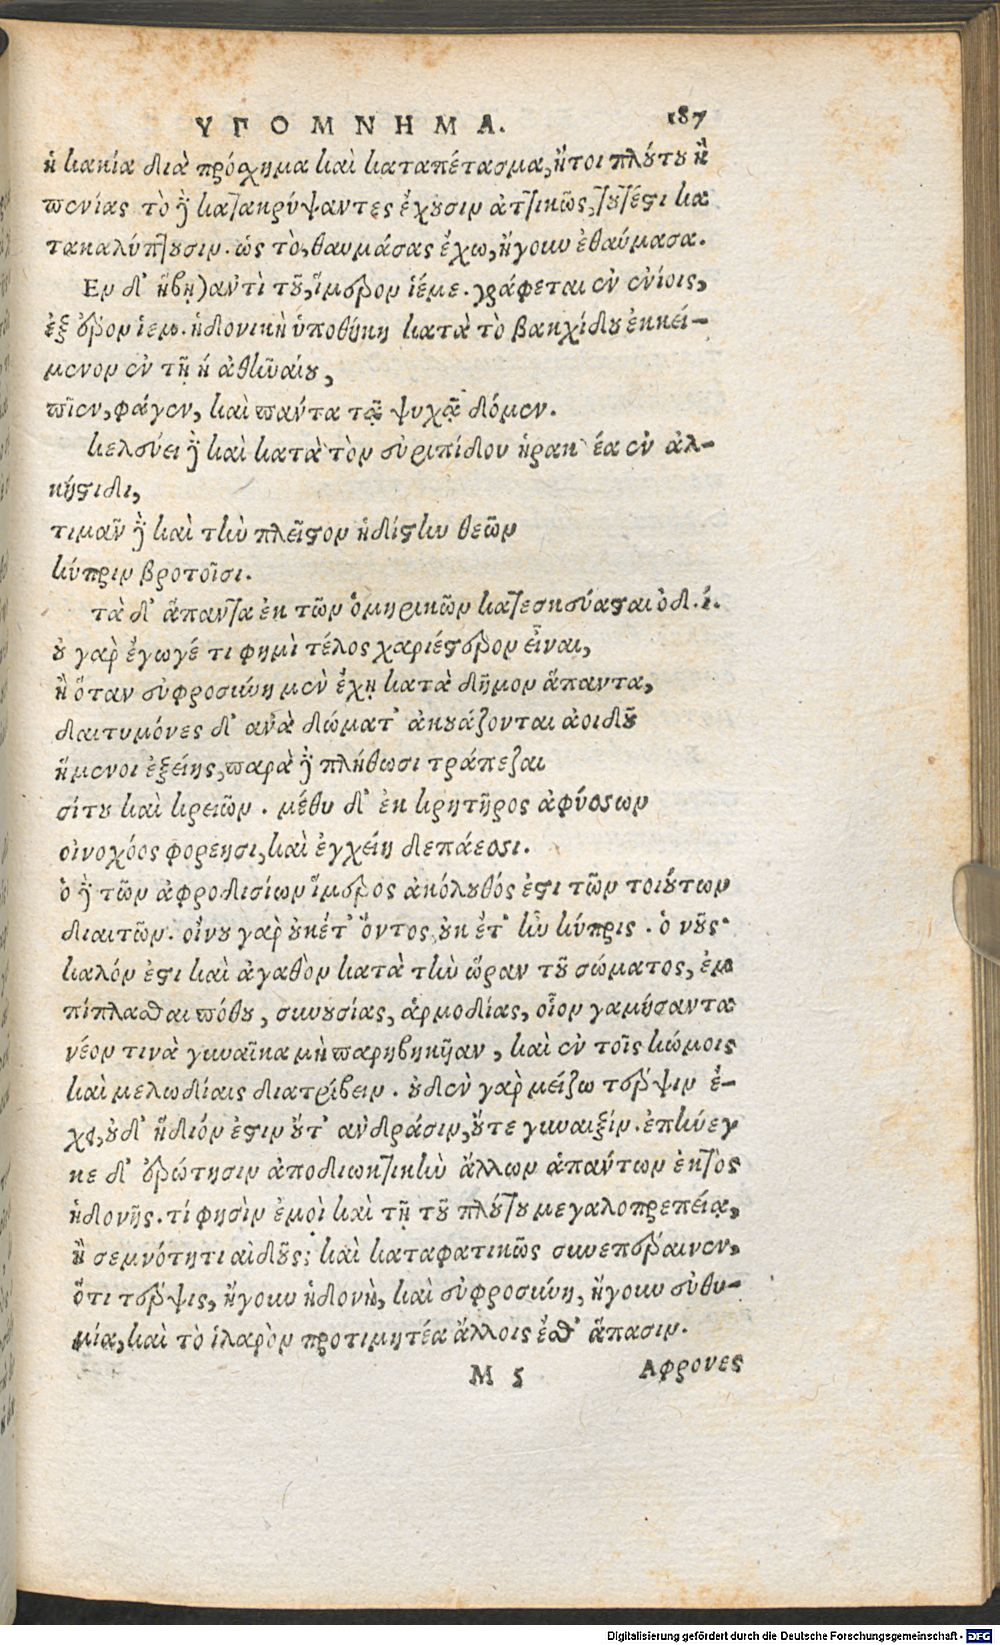 ΥΠΟΜΝΗΜΑ. 187
ἡ κακία διὰ πρόσχημα καὶ καταπέτασμα, ἤτοι πλούτου ἢ
πενίας τὸ δὲ κατακρύψαντες ἔχουσιν ἀττικῶς, τουτέστι κα
τακαλύπτουσιν. ὡς τὸ, θαυμάσας ἔχω, ἤγουν ἐθαύμασα.
Εν δ' ἥβῃ) αὐτὶ τοῦ, ἵμερον ἵεμε. γράφεται ἐν ἐνίοις,
ἐξ ἔρον ἱεμ. ἡδονικὴ ὑποθήκη κατὰ τὸ βακχίδου ἐκκεί-
μενον ἐν τῇ ή ἀθηναίου,
πῖεν, φάγεν, καὶ πάντα τᾷ ψυχᾷ δόμεν.
κελεύει δὲ καὶ κατὰ τὸν εὐριπίδου ἡρακ έα ἐν ἀλ-
κήστιδι,
τιμᾶν δὲ καὶ τὴν πλεῖστον ἡδίστην θεῶν
κύπριν βροτοῖσι.
τὰ δ' ἅπαντα ἐκ τῶν ὁμηρικῶν κατεσκεύασται ὀδ. ί.
οὐ γὰρ ἔγωγέ τι φημὶ τέλος χαριέστερον εἶναι,
ἢ ὅταν εὐφροσύνη μὲν ἔχῃ κατὰ δῆμον ἅπαντα,
δαιτυμόνες δ' ἀνὰ δώματ' ἀκουάζονται ἀοιδοῦ
ἥμενοι ἐξείης, παρὰ δὲ πλήθωσι τράπεζαι
σίτου καὶ κρειῶν. μέθυ δ' ἐκ κρητῆρος ἀφύσσων
οἰνοχόος φορεησι, καὶ ἐγχείη δεπάεσσι.
ὁ δὲ τῶν ἀφροδισίων ἵμερος ἀκόλουθός ἐστι τῶν τοιούτων
διαιτῶν. οἴνου γὰρ οὐκέτ' ὄντος, οὐκ ἔτ' ἦν κύπρις. ὁ νοῦς·
καλόν ἐστι καὶ ἀγαθὸν κατὰ τὴν ὥραν τοῦ σώματος, ἐμ
πίπλασθαι πόθου, συνουσίας, ἁρμοδίας, οἷον γαμήσαντα
νέον τινὰ γυναῖκα μὴ παρηβηκῆαν, καὶ ἐν τοῖς κώμοις
καὶ μελωδίαις διατρίβειν. οὐδὲν γὰρ μείζω τέρψιν ἔ-
χει, οὐδ' ἥδιόν ἐστιν οὔτ' ἀνδράσιν, οὔτε γυναιξίν. ἐπήνεγ
κε δ' ἐρώτησιν ἀποδιωκτικὴν ἄλλων ἁπάντων ἐκτὸς
ἡδονῆς. τί φησὶν ἐμοὶ καὶ τῇ τοῦ πλούτου μεγαλοπρεπείᾳ,
ἢ σεμνότητι αἰδοῦς; καὶ καταφατικῶς συνεπεραίνεν,
ὅτι τέρψις, ἤγουν ἡδονὴ, καὶ εὐφροσύνη, ἤγουν εὐθυ-
μία, καὶ τὸ ἱλαρὸν προτιμητέα ἄλλοις ἐσθ' ἅπασιν.
M 5 Αφρονες
Digitalisierung gefördert durch die Deutsche Forschungsgemeinschaft - DFG